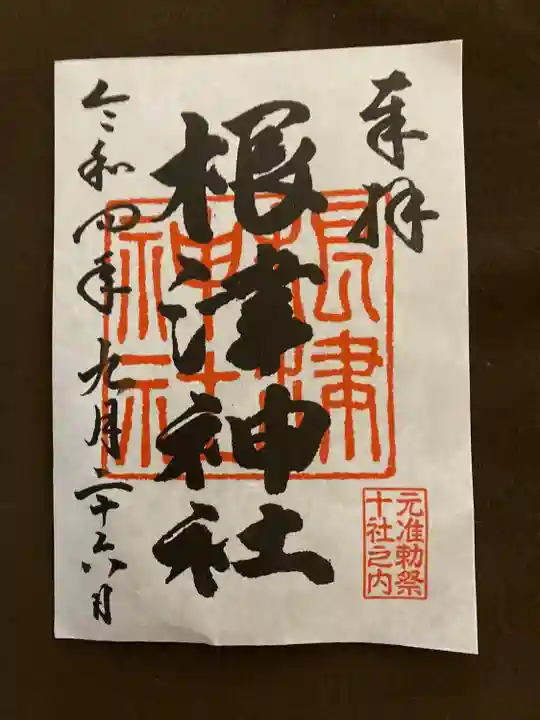 奉拝
元准勅祭
十社之内
根津神社
根津
神社
令和四年九月二十六日